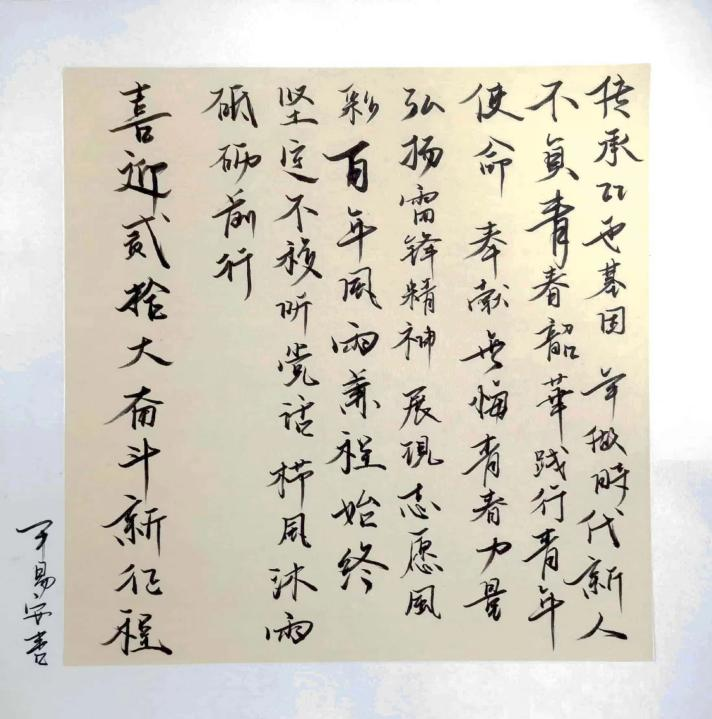 传承红色基因 争做時代新人
不負青春韶華践行青年
使命 奉献无悔青春力量
弘扬雷锋精神 展現志愿风
彩 百年风雨兼程始终
坚定不移听党话 栉风沐雨
砥砺前行
喜迎贰拾大奋斗新征程
易安书